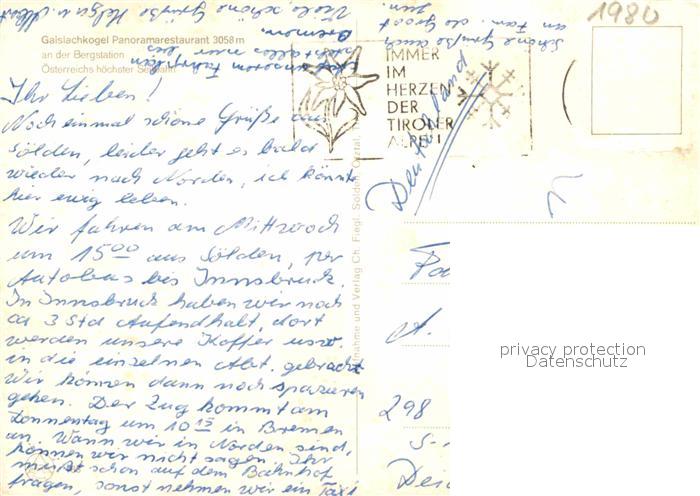 Gaislachkogel Panoramarestaurant 3058 m
an der Bergstation
Österreichs höchster Seilbahn
Ihr Lieben!
Noch einmal schöne Grüße aus
Sölden, leider geht es bald
wieder nach Norden, ich könnte
hier ewig leben.
Wir fahren am Mittwoch
um 15⁰⁰ aus Sölden, per
Autobus bis Innsbruck.
In Innsbruck haben wir noch
ca 3 Std Aufendhalt, dort
werden unsere Koffer usw.
in die einzelnen Abt. gebracht
Wir können dann noch spazieren
gehen. Der Zug kommt am
Donnerstag um 10 in Bremen
an. Wann wir in Norden sind,
können wir nicht sagen. Ihr
müßt schon auf dem Bahnhof
fragen, sonst nehmen wir ein Taxi
Bremen.
Viele schöne Grüße Helga u. Albert
Schöne Grüße auch
an Fam. de Groot
1980
IMMER
IM
HERZEN
DER
TIROLER
ALPEN
Deutschland
Aufnahme und Verlag Ch. Fiegl, Sölden, Ötztal, Tirol
298
privacy protection
Datenschutz